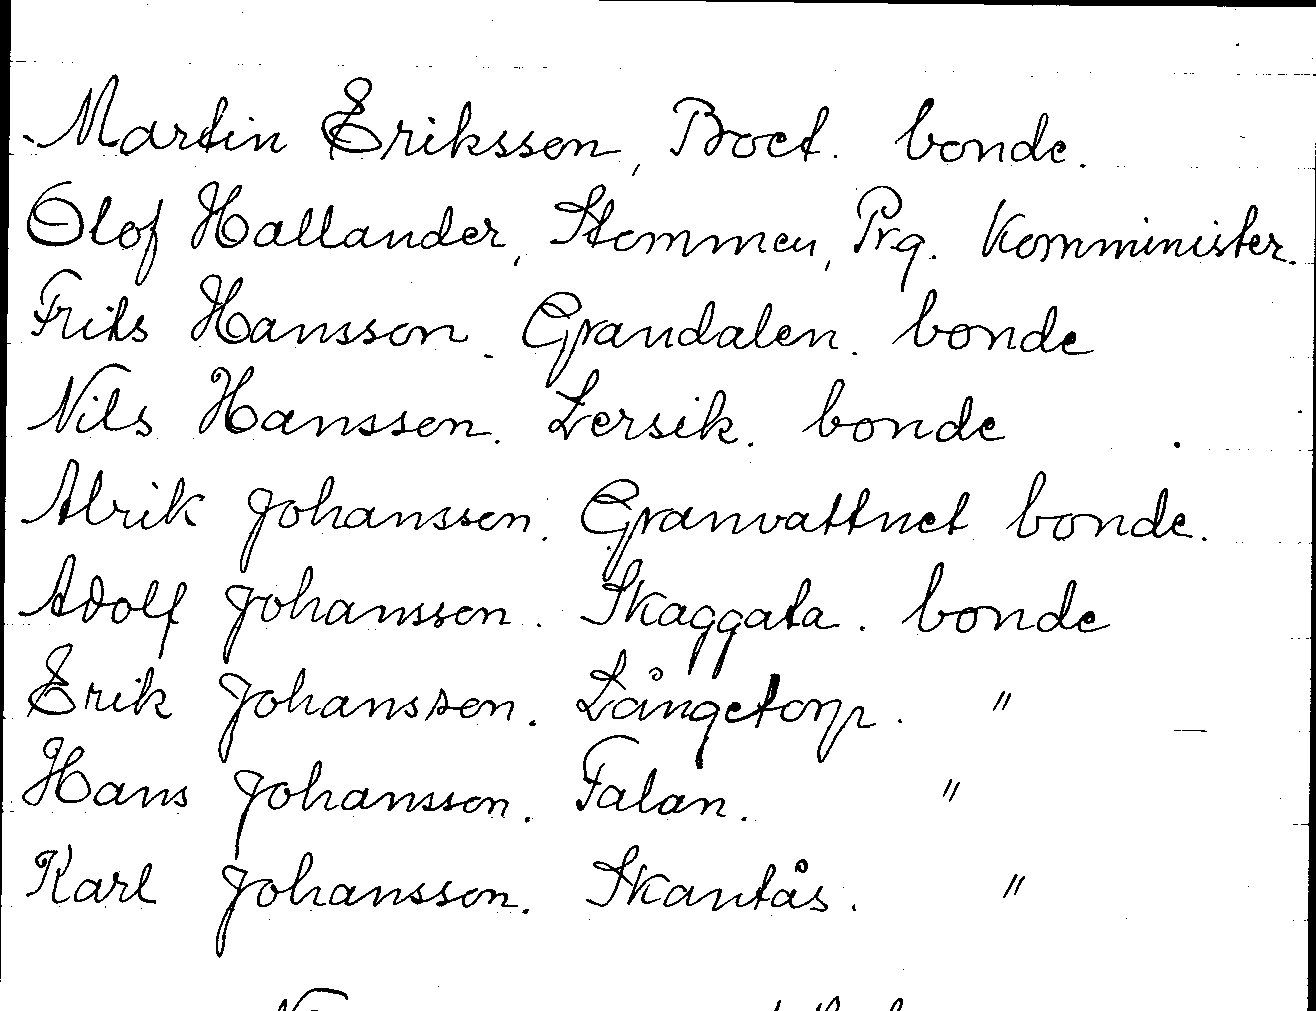 Martin Eriksson, Boet. bonde.
Olof Hallander, Stommen, Prg. Komminister.
Frits Hansson. Grandalen. bonde
Nils Hansson. Lersik. bonde
Alrik Johansson. Granvattnet bonde.
Adolf Johansson. Skaggata. bonde
Erik Johansson. Långetorp. "
Hans Johansson. Falan. "
Karl Johansson. Skantås. "